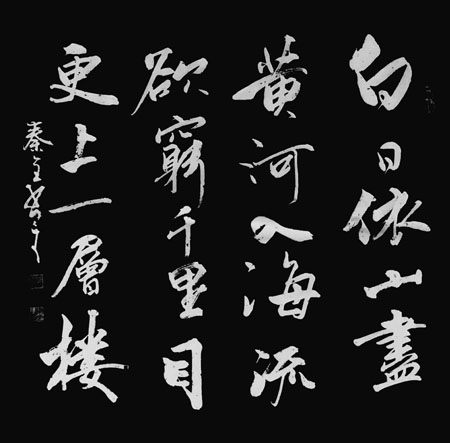 白日依山盡
黃河入海流
欲窮千里目
更上一層楼